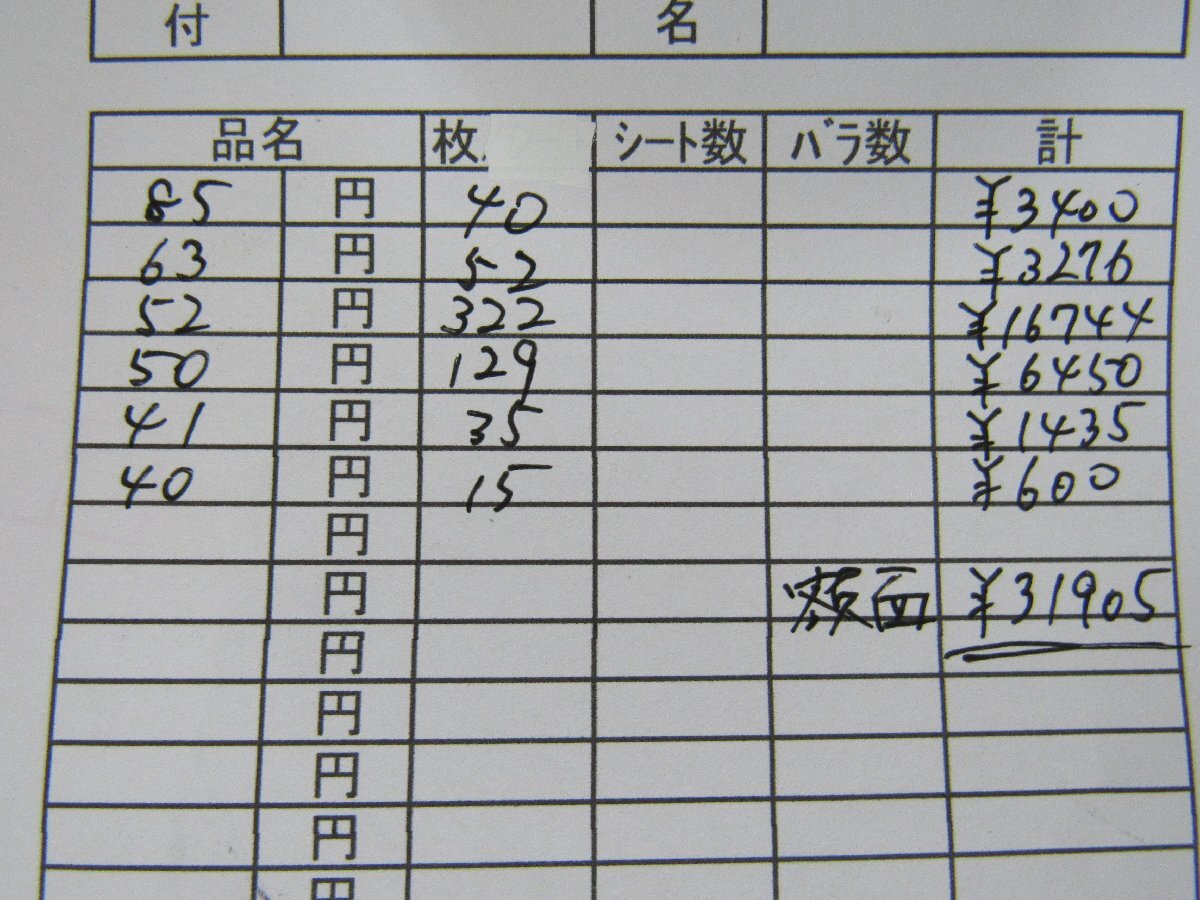 付 名
品名 枚 シート数 バラ数 計
85 円 40 ¥3400
63 円 52 ¥3276
52 円 322 ¥16744
50 円 129 ¥6450
41 円 35 ¥1435
40 円 15 ¥600
円
円 額面 ¥31905
円
円
円
円
円